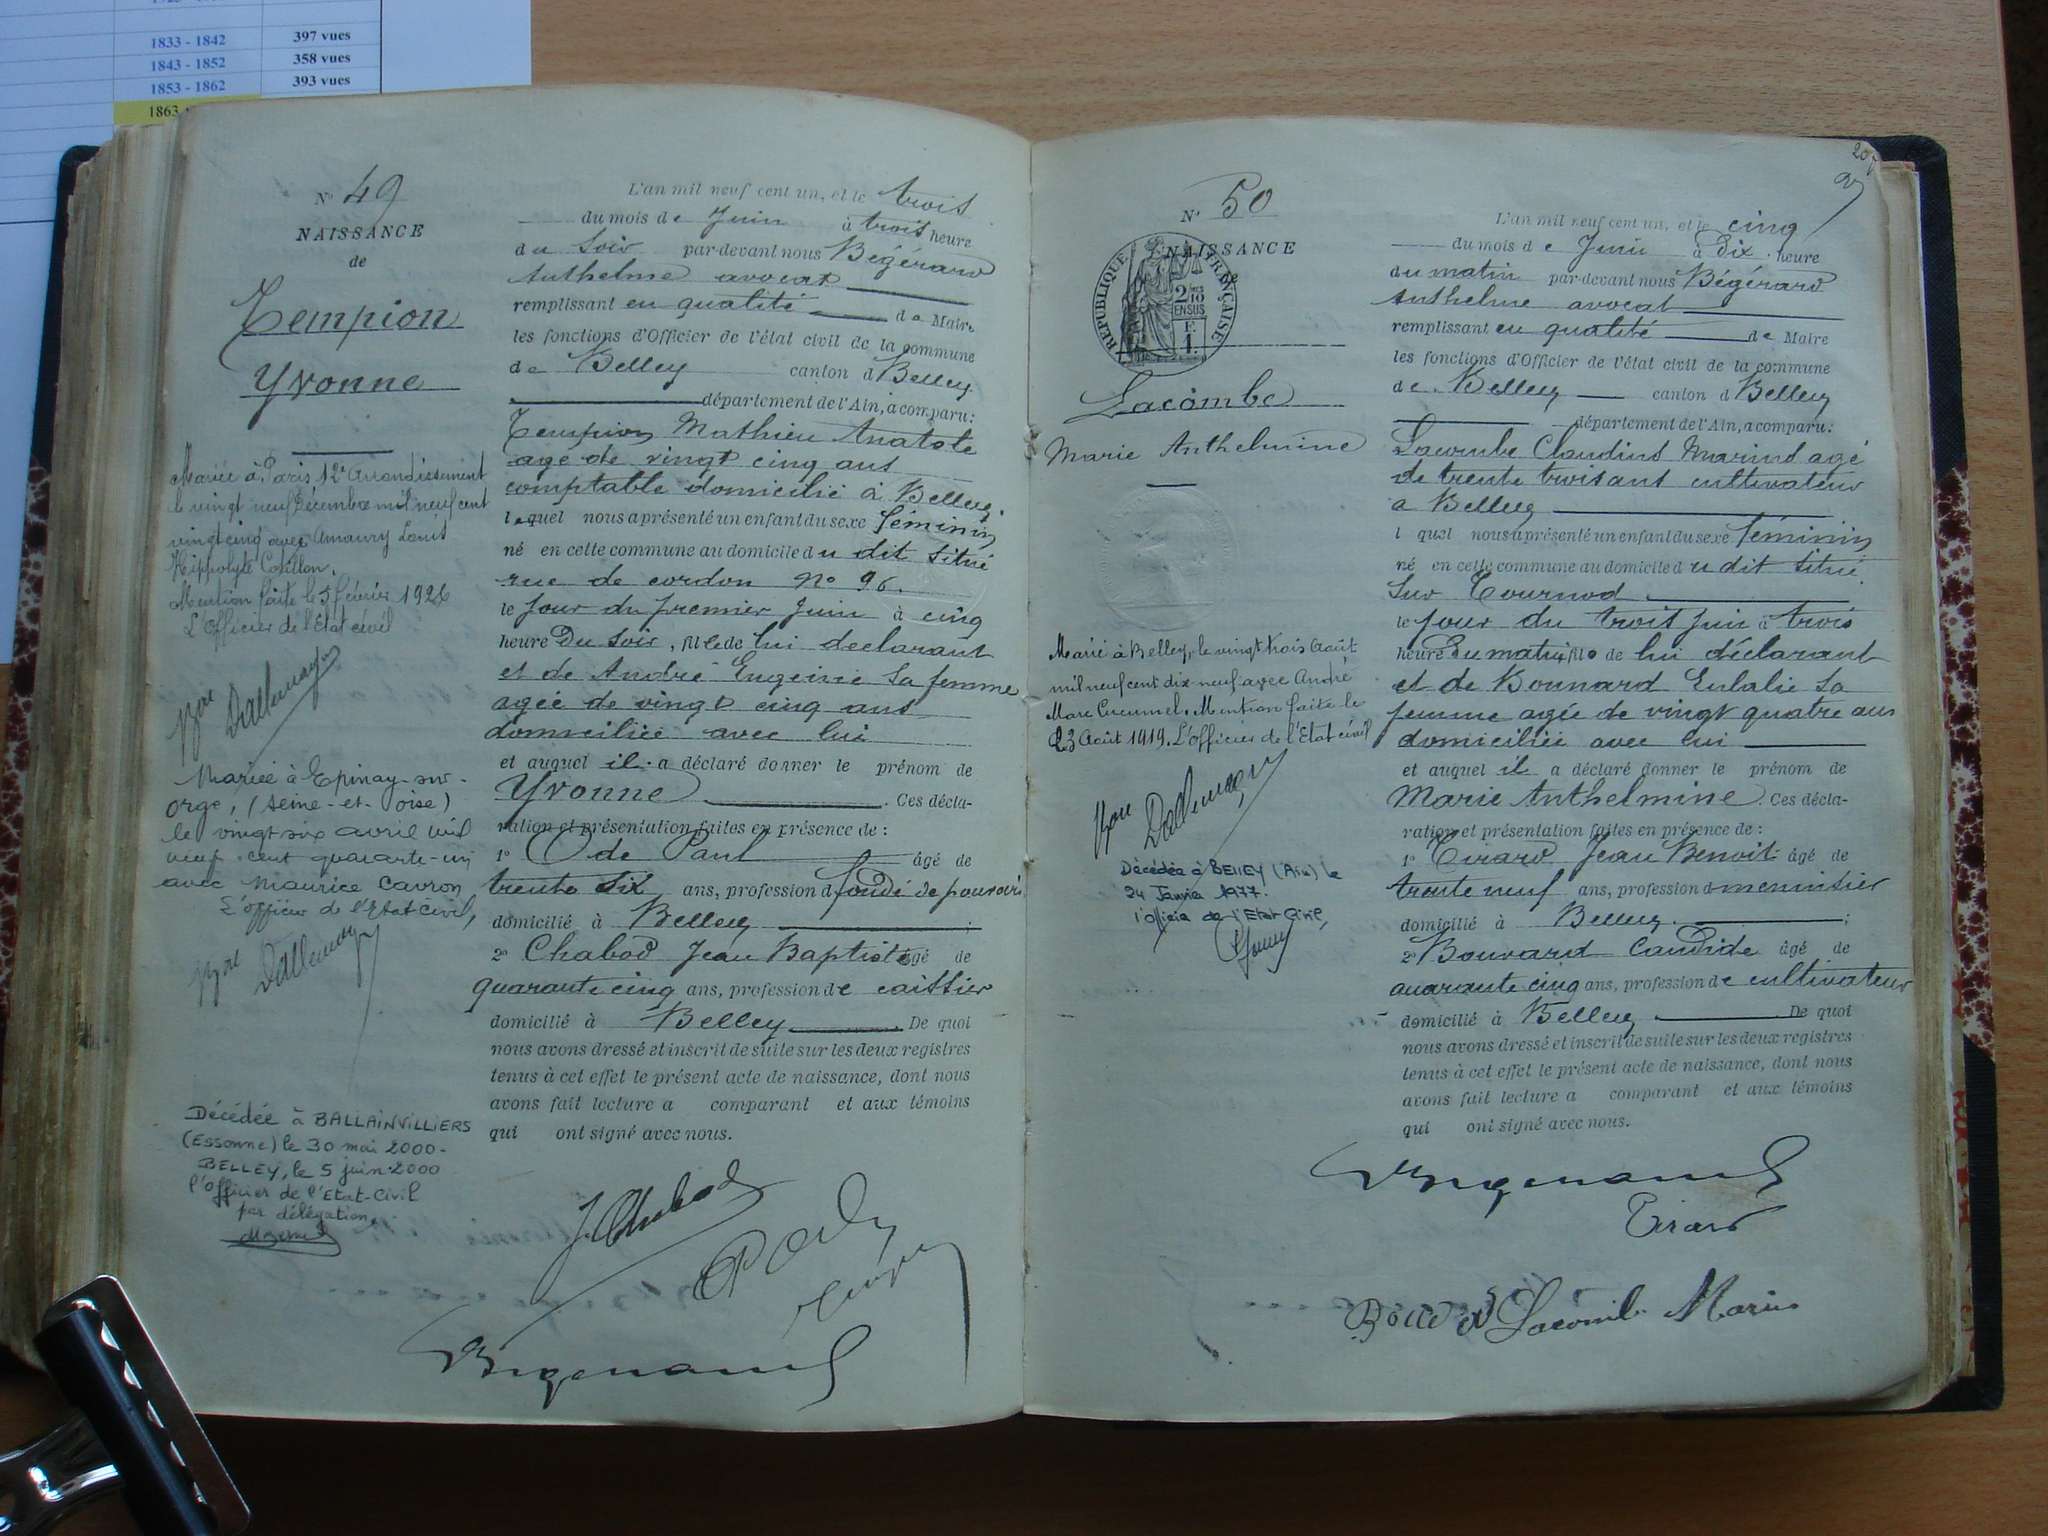 1833 - 1842 397 vues
1843 - 1852 358 vues
1853 - 1862 393 vues
1863
N° 49
NAISSANCE
de
Tempion
Yvonne
Mariée à Paris 12e Arrondissement
le vingt neuf Décembre mil neuf cent
vingt cinq avec Amaury Louis
Hippolyte
Mention faite le 5 février 1926
L'Officier de l'Etat civil
Dallemagne
Mariée à Epinay-sur-
orge, (Seine-et-Oise)
le vingt six avril mil
neuf cent quarante-un
avec Maurice Cavron
L'officier de l'Etat civil,
Dallemagne
Décédée à BALLAINVILLIERS
(Essonne) le 30 mai 2000-
BELLEY, le 5 juin 2000
l'officier de l'Etat-Civil
par délégation,
L'an mil neuf cent un, et le trois
du mois de Juin à trois heure
du soir par-devant nous Bégérard
Anthelme avocat
remplissant en qualité de Maire
les fonctions d'Officier de l'état civil de la commune
de Belley canton d Belley
département de l'Ain, a comparu:
Tempion Mathieu Anatole
agé de vingt cinq ans
comptable domicilié à Belley
lequel nous a présenté un enfant du sexe féminin
né en cette commune au domicile du dit situé
rue de cordon no 96.
le jour du premier Juin à cinq
heure Du soir, fille de lui declarant
et de André Eugénie sa femme
agée de vingt cinq ans
domiciliée avec lui
et auquel il a déclaré donner le prénom de
Yvonne. Ces décla-
ration et présentation faites en présence de:
1° Ode Paul âgé de
trente six ans, profession d fondé de pouvoir
domicilié à Belley;
2° Chabod Jean Baptiste âgé de
quarante cinq ans, profession de caissier
domicilié à Belley. De quoi
nous avons dressé et inscrit de suite sur les deux registres
tenus à cet effet le présent acte de naissance, dont nous
avons fait lecture a comparant et aux témoins
qui ont signé avec nous.
J. Chabod
P Ode
N° 50
NAISSANCE
RÉPUBLIQUE FRANÇAISE
2/10 EN SUS
1 F.
Lacombe
Marie Anthelmine
Marié à Belley, le vingt trois Août
mil neuf cent dix neuf avec André
Marc Cucumel. Mention faite le
23 Août 1919. L'Officier de l'Etat civil
Dallemagne
Décédée à BELLEY (Ain) le
24 Janvier 1977.
l'officier de l'Etat Civil,
L'an mil neuf cent un, et le cinq
du mois de Juin à Dix heure
du matin par-devant nous Bégérard
Anthelme avocat
remplissant en qualité de Maire
les fonctions d'Officier de l'état civil de la commune
de Belley canton d Belley
département de l'Ain, a comparu:
Lacombe Claudius Marius agé
de trente trois ans cultivateur
a Belley
l quel nous a présenté un enfant du sexe féminin
né en cette commune au domicile du dit situé
Sur Tournod
le jour du trois Juin à trois
heure du matin, fille de lui déclarant
et de Bonnard Eulalie sa
femme agée de vingt quatre ans
domiciliée avec lui
et auquel il a déclaré donner le prénom de
Marie Anthelmine. Ces décla-
ration et présentation faites en présence de:
1° Tirard Jean Benoit âgé de
trente neuf ans, profession d menuisier
domicilié à Belley;
2° Bouvard Candide âgé de
quarante cinq ans, profession de cultivateur
domicilié à Belley De quoi
nous avons dressé et inscrit de suite sur les deux registres
tenus à cet effet le présent acte de naissance, dont nous
avons fait lecture a comparant et aux témoins
qui ont signé avec nous.
Tirard
Lacombe Marius